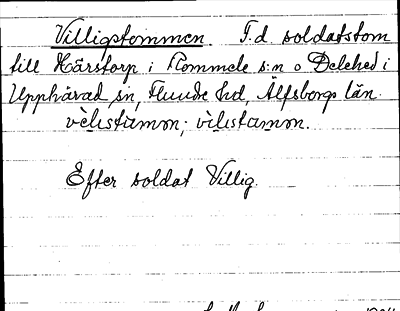 Villigstommen. F.d soldatstom
till Härstorp i Rommele s:n o Delehed i
Upphärad sn, Flundre hd, Älfsborgs län.
Efter soldat Villig.